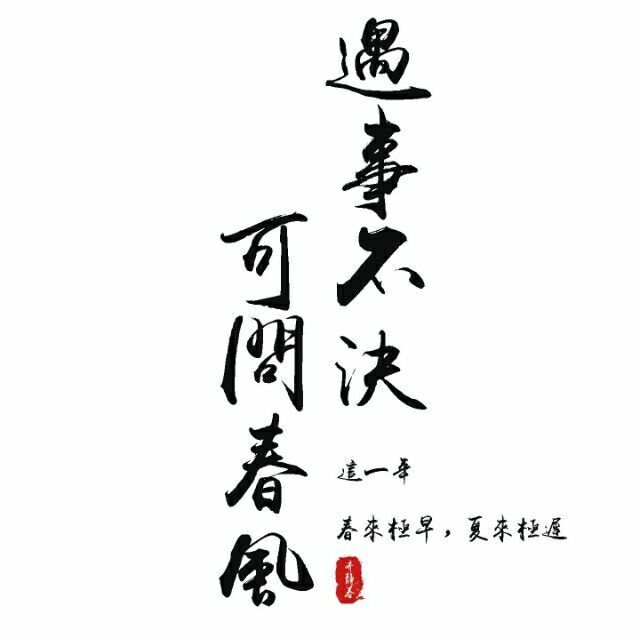 遇事不決
可問春風
這一年
春來極早，夏來極遲
齐静春